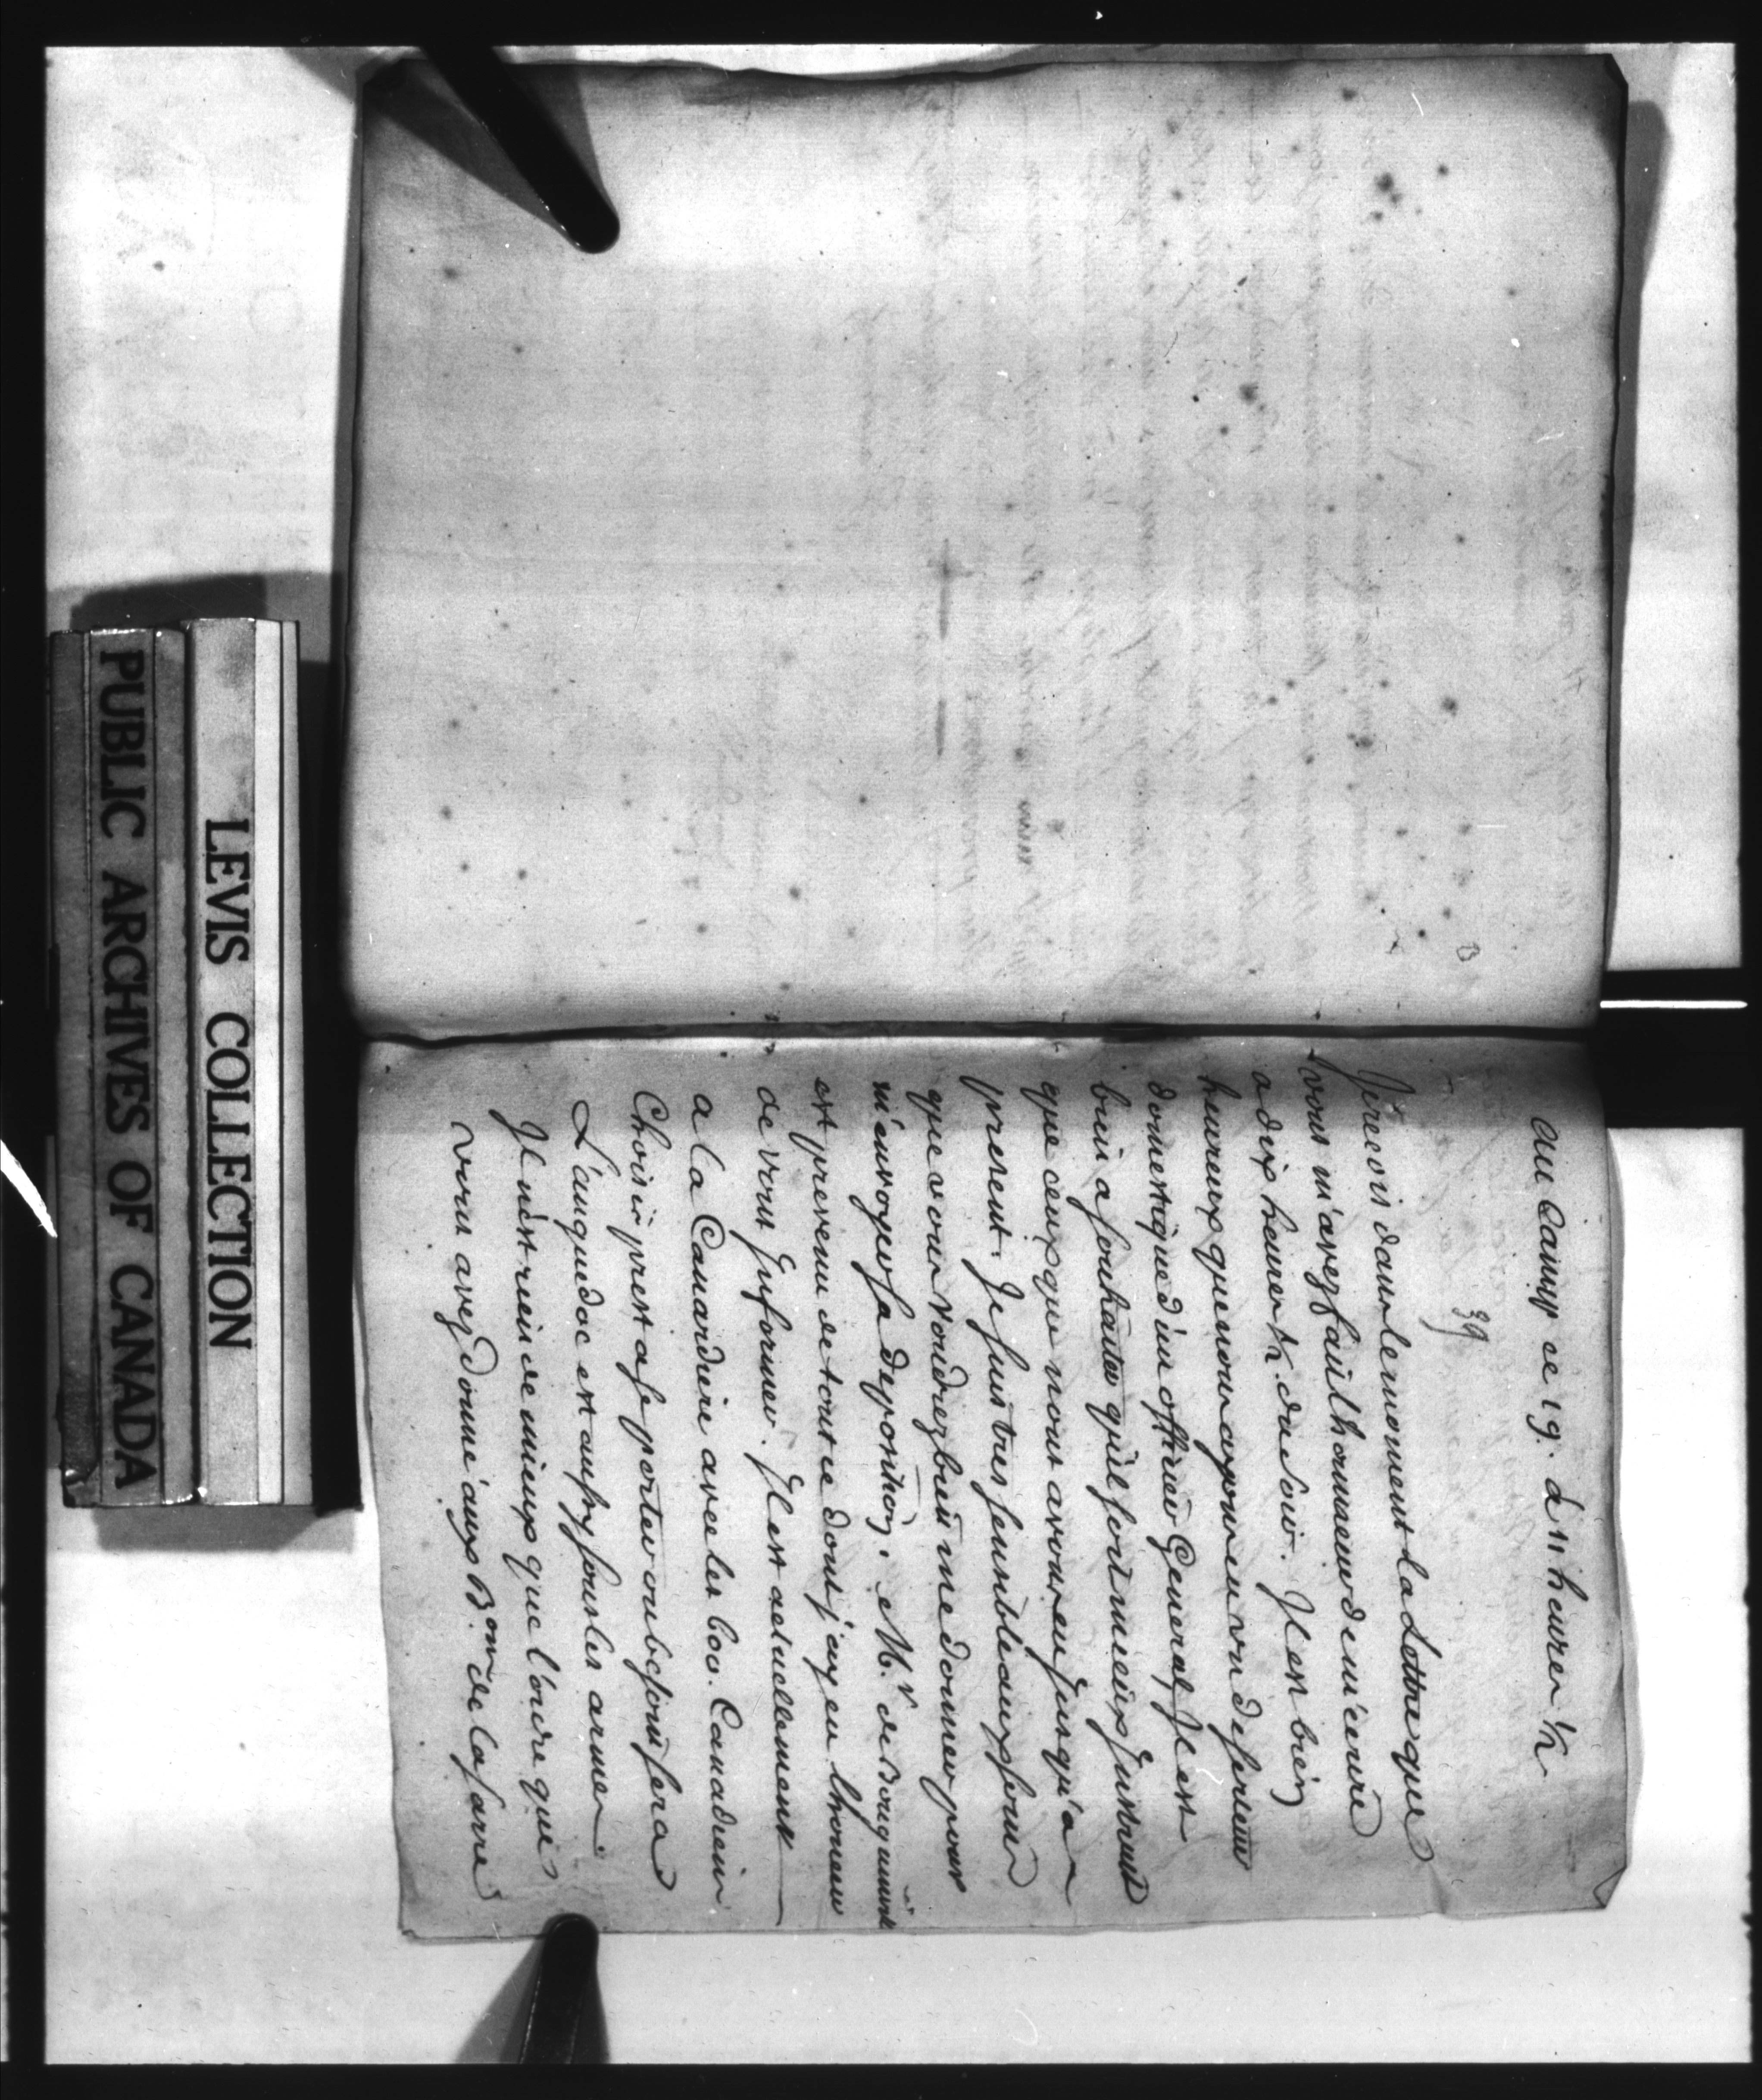 au Camp ce 19. à 11 heures 1/2
39
Je recois dans le moment la Lettre que
vous m'avez fait lhonneur de m'ecrire
a dix heures 1/2. du Soir. Il est bien
heureux que nous ayons eu un deserteur
domestique d'un officier General, Il est
bien a souhaiter quil soit mieux Instruit
que ceux que nous avons eu Jusqu'a
present. Je suis tres sensible aux soins
que vous voudrez bien me donner pour
m'envoyer sa deposition. Mr. de Bougainville
est prevenu de tout ce dont j'ay eu lhonneur
de vous Informer. Il est actuellement
a la Canardiere avec les 600. Canadiens
Choisis prest a se porter ou besoin sera
Languedoc est aussy sous les armes.
Il n'est rien de mieux que l'ordre que
vous avez donné aux Bons. de la Sarre
PUBLIC ARCHIVES OF CANADA
LEVIS COLLECTION